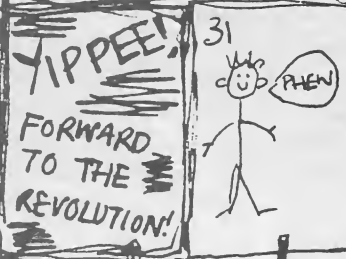 YIPPEE!
FORWARD
TO THE
REVOLUTION!
31
PHEW